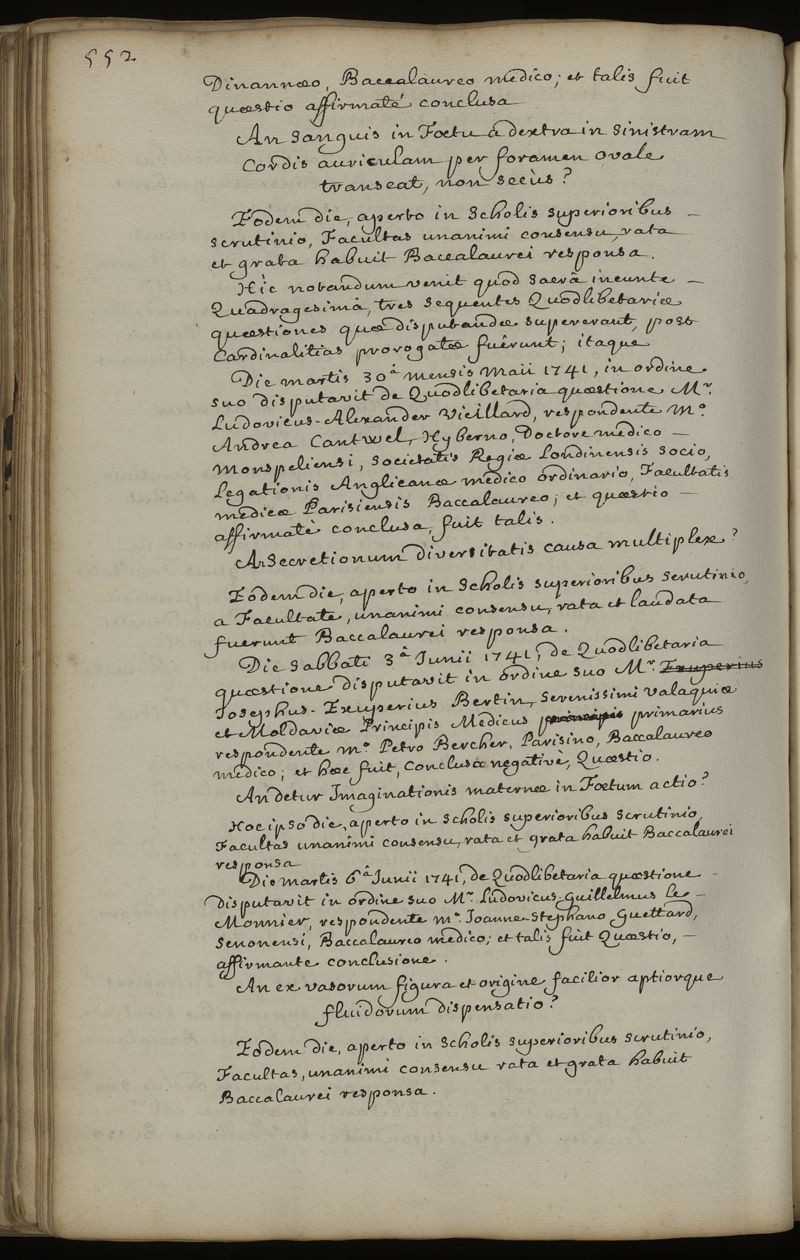 552
Dinannæo, Baccalaureo medico; et talis fuit
quæstio affirmatè conclusa
An Sanguis in Fœtu a dextra in sinistram
Cordis auriculam per foramen ovale
transeat, non secùs?
Eodem die, aperto in Scholis superioribus –
scrutinio, Facultas unanimi consensu, rata
et grata habuit Baccalaurei responsa.
Hîc notandum venit quod sacrâ ineunte –
Quadragesimâ, tres sequentes Quodlibetariæ
quæstiones quæ disputandæ supererant, post
Cardinalitias prorogatæ fuêrunt; itaque
Die martis 30.â mensis Maii 1741, in ordine
suo disputavit de Quodlibetaria quæstione Mr.
Ludovicus-Alexander Vieillard, respondente Mo.
Andrea Cantwel, Hyberno, Doctore medico –
Monspeliensi, Societatis Regiæ Londinensis Socio,
Legationis Anglicanæ medico ordinario, Facultatis
medicæ Parisiensis Baccalaureo; et quæstio –
affirmatè conclusa, fuit talis.
An Secretionum diversitatis causa multiplex?
Eodem die, aperto in Scholis superioribus scrutinio,
a Facultate, unanimi consensu, rata et laudata
fuerunt Baccalaurei responsa.
Die Sabbati 3.â Junii 1741, de Quodlibetaria
quæstione disputavit in ordine suo Mr. Exuperius
Josephus-Exuperius Bertin, Serenissimi Valaquiæ
et Moldaviæ Principis Medicus primarius
respondente mo. Petro Bercher, Parisino, Baccalaureo
medico; et hæc fuit, conclusa negativè, Quæstio.
An detur Imaginationis maternæ in Fœtum actio?
Hoc ipso die, aperto in Scholis superioribus scrutinio,
Facultas unanimi consensu, rata et grata habuit Baccalaurei
responsa
Die martis 6.â Junii 1741, de Quodlibetaria quæstione –
disputavit in ordine suo Mr. Ludovicus-Guillelmus le –
Monnier, respondente mo. Joanne-Stephano Guettard,
Senonensi, Baccalaureo medico; et talis fuit Quæstio, –
affirmante conclusione.
An ex vasorum figura et origine facilior aptiorque
fluidorum dispensatio?
Eodem die, aperto in Scholis superioribus scrutinio,
Facultas, unanimi consensu rata et grata habuit
Baccalaurei responsa.